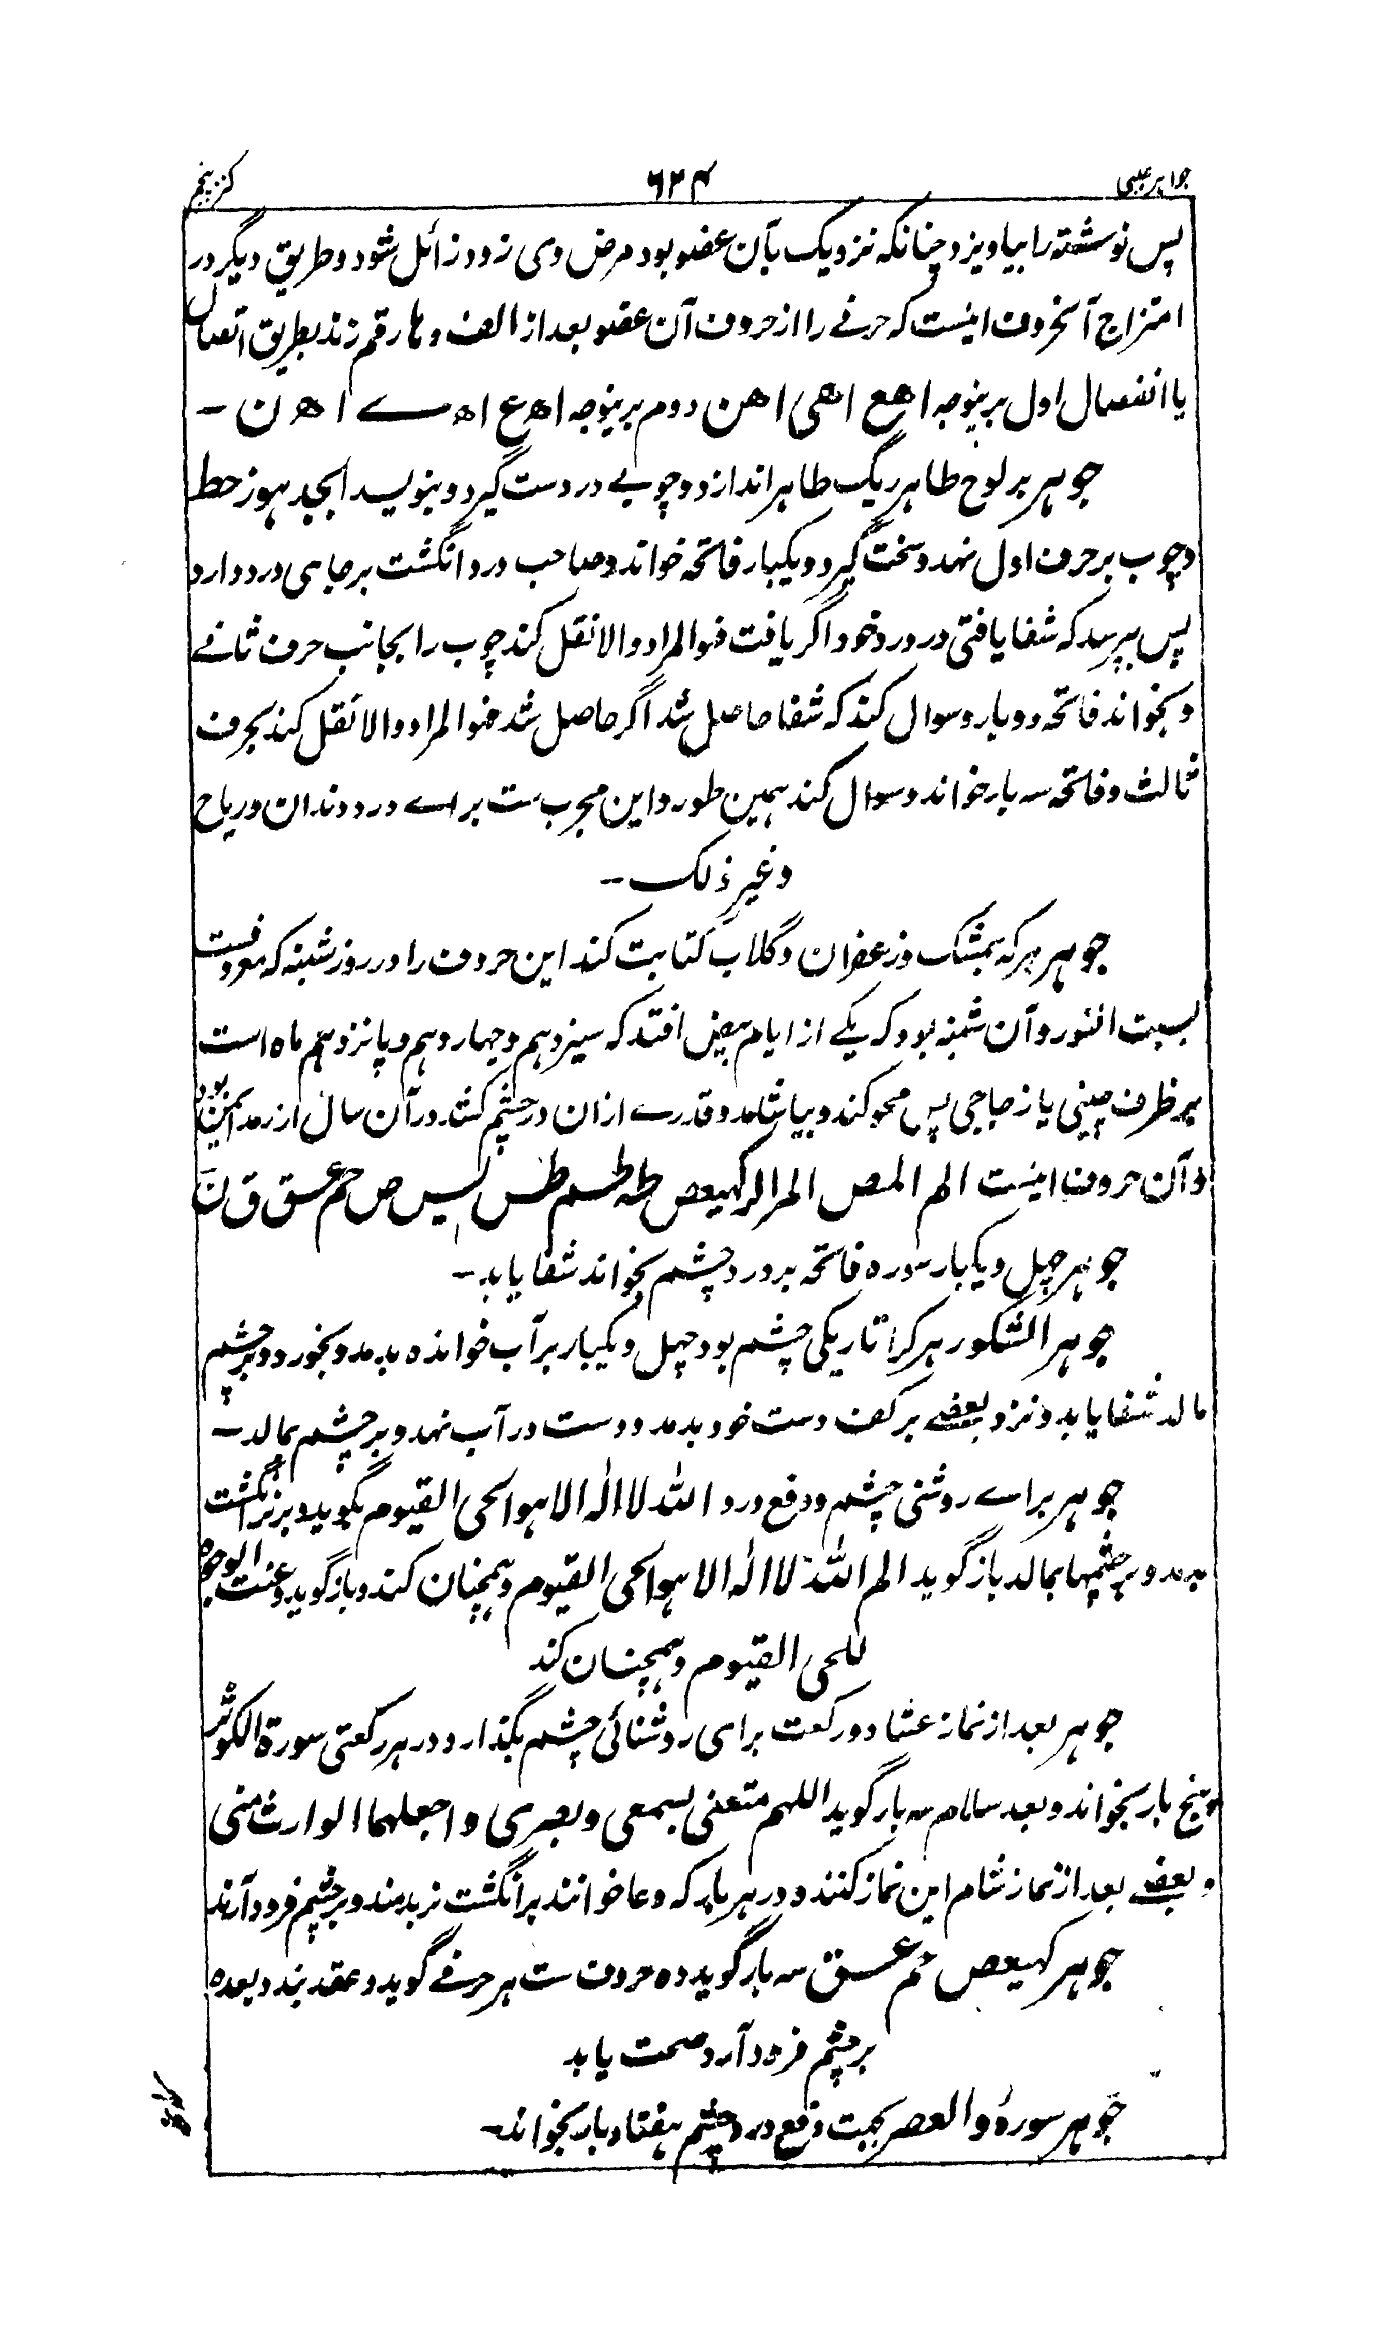 جواہر غیبی ۶۲۴ کنز پنجم
پس نوشته را بیاویزد چنانکه نزدیک بآن عضو بود مرض وی زود زائل شود و طریق دیگر در
امتزاج آنحروف اینست که حرفے را از حروف آن عضو بعد از الف و ها رقم زند بطریق اتصال
یا انفصال اول برینوجه اهع اهی اهن دوم برینوجه اه ع اه ے اه ن -
جوهر بر لوح طاهر ریگ طاهر اندازد و چوبے در دست گیرد و بنویسد ابجد هوز حطی
و چوب بر حرف اول نهد و سخت گیرد و یکبار فاتحه خواند و صاحب درد انگشت بر جاهی درد دارد
پس بپرسد که شفا یافتی در درد خود اگر یافت فهو المراد والا نقل کند چوب را بجانب حرف ثانے
و بخواند فاتحه دو بار و سوال کند که شفا حاصل شد اگر حاصل شد فهو المراد والا نقل کند بحرف
ثالث و فاتحه سه بار خواند و سوال کند همین طور و این مجرب ست براے درد دندان و ریاح
و غیر ذلک -
جوهر هرکه بمشک و زعفران و گلاب کتابت کند این حروف را در روز شنبه که معروفست
بسبت النور و آن شنبه بود که یکے از ایام بیض افتد که سیزدهم و چهاردهم و پانزدهم ماه است
بر ظرف چینی یا زجاجی پس محو کند و بیاشامد و قدرے ازان در چشم کشد در آن سال از رمد ایمن بود
و آن حروف اینست الم المص المر الر کهیعص طه طسم طس یس ص حم عسق ق ن
جوهر چهل و یکبار سوره فاتحه بر درد چشم بخواند شفا یابد -
جوهر الشکور هر کرا تاریکی چشم بود چهل و یکبار بر آب خوانده بدمد و بخورد و بر چشم
مالد شفا یابد و نزد بعضے بر کف دست خود بدمد و دست در آب نهد و بر چشم بمالد -
جوهر براے روشنی چشم و دفع درد الله لا اله الا هو الحی القیوم بگوید و بر نر انگشت
بدمد و بر چشمها بمالد باز گوید الم الله لا اله الا هو الحی القیوم و همچنان کند و باز گوید و عنت الوجوه
للحی القیوم و همچنان کند
جوهر بعد از نماز عشا دو رکعت برای روشنائی چشم بگذارد در هر رکعتی سورة الکوثر
پنج بار بخواند و بعد سلام سه بار گوید اللهم متعنی بسمعی و بصری و اجعلهما الوارث منی
و بعضے بعد از نماز شام این نماز کنند و در هر بار که دعا خوانند بر انگشت نر بدمند و بر چشم فرود آرند
جوهر کهیعص حم عسق سه بار گوید ده حروف ست هر حرفے گوید و عقد بندد بعده
بر چشم فرود آرد صحت یابد
جوهر سورۀ والعصر بجهت دفع درد چشم هفتاد بار بخواند -